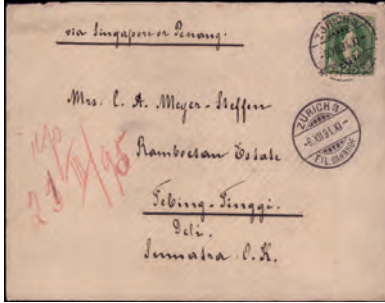 via Singapore or Penang.
ZÜRICH
Mrs. C. A. Meyer-Steffen
ZÜRICH 11
FIL. BAHNHOF
Ramboetan Estate
Tebing-Tinggi.
Deli.
Sumatra O.K.